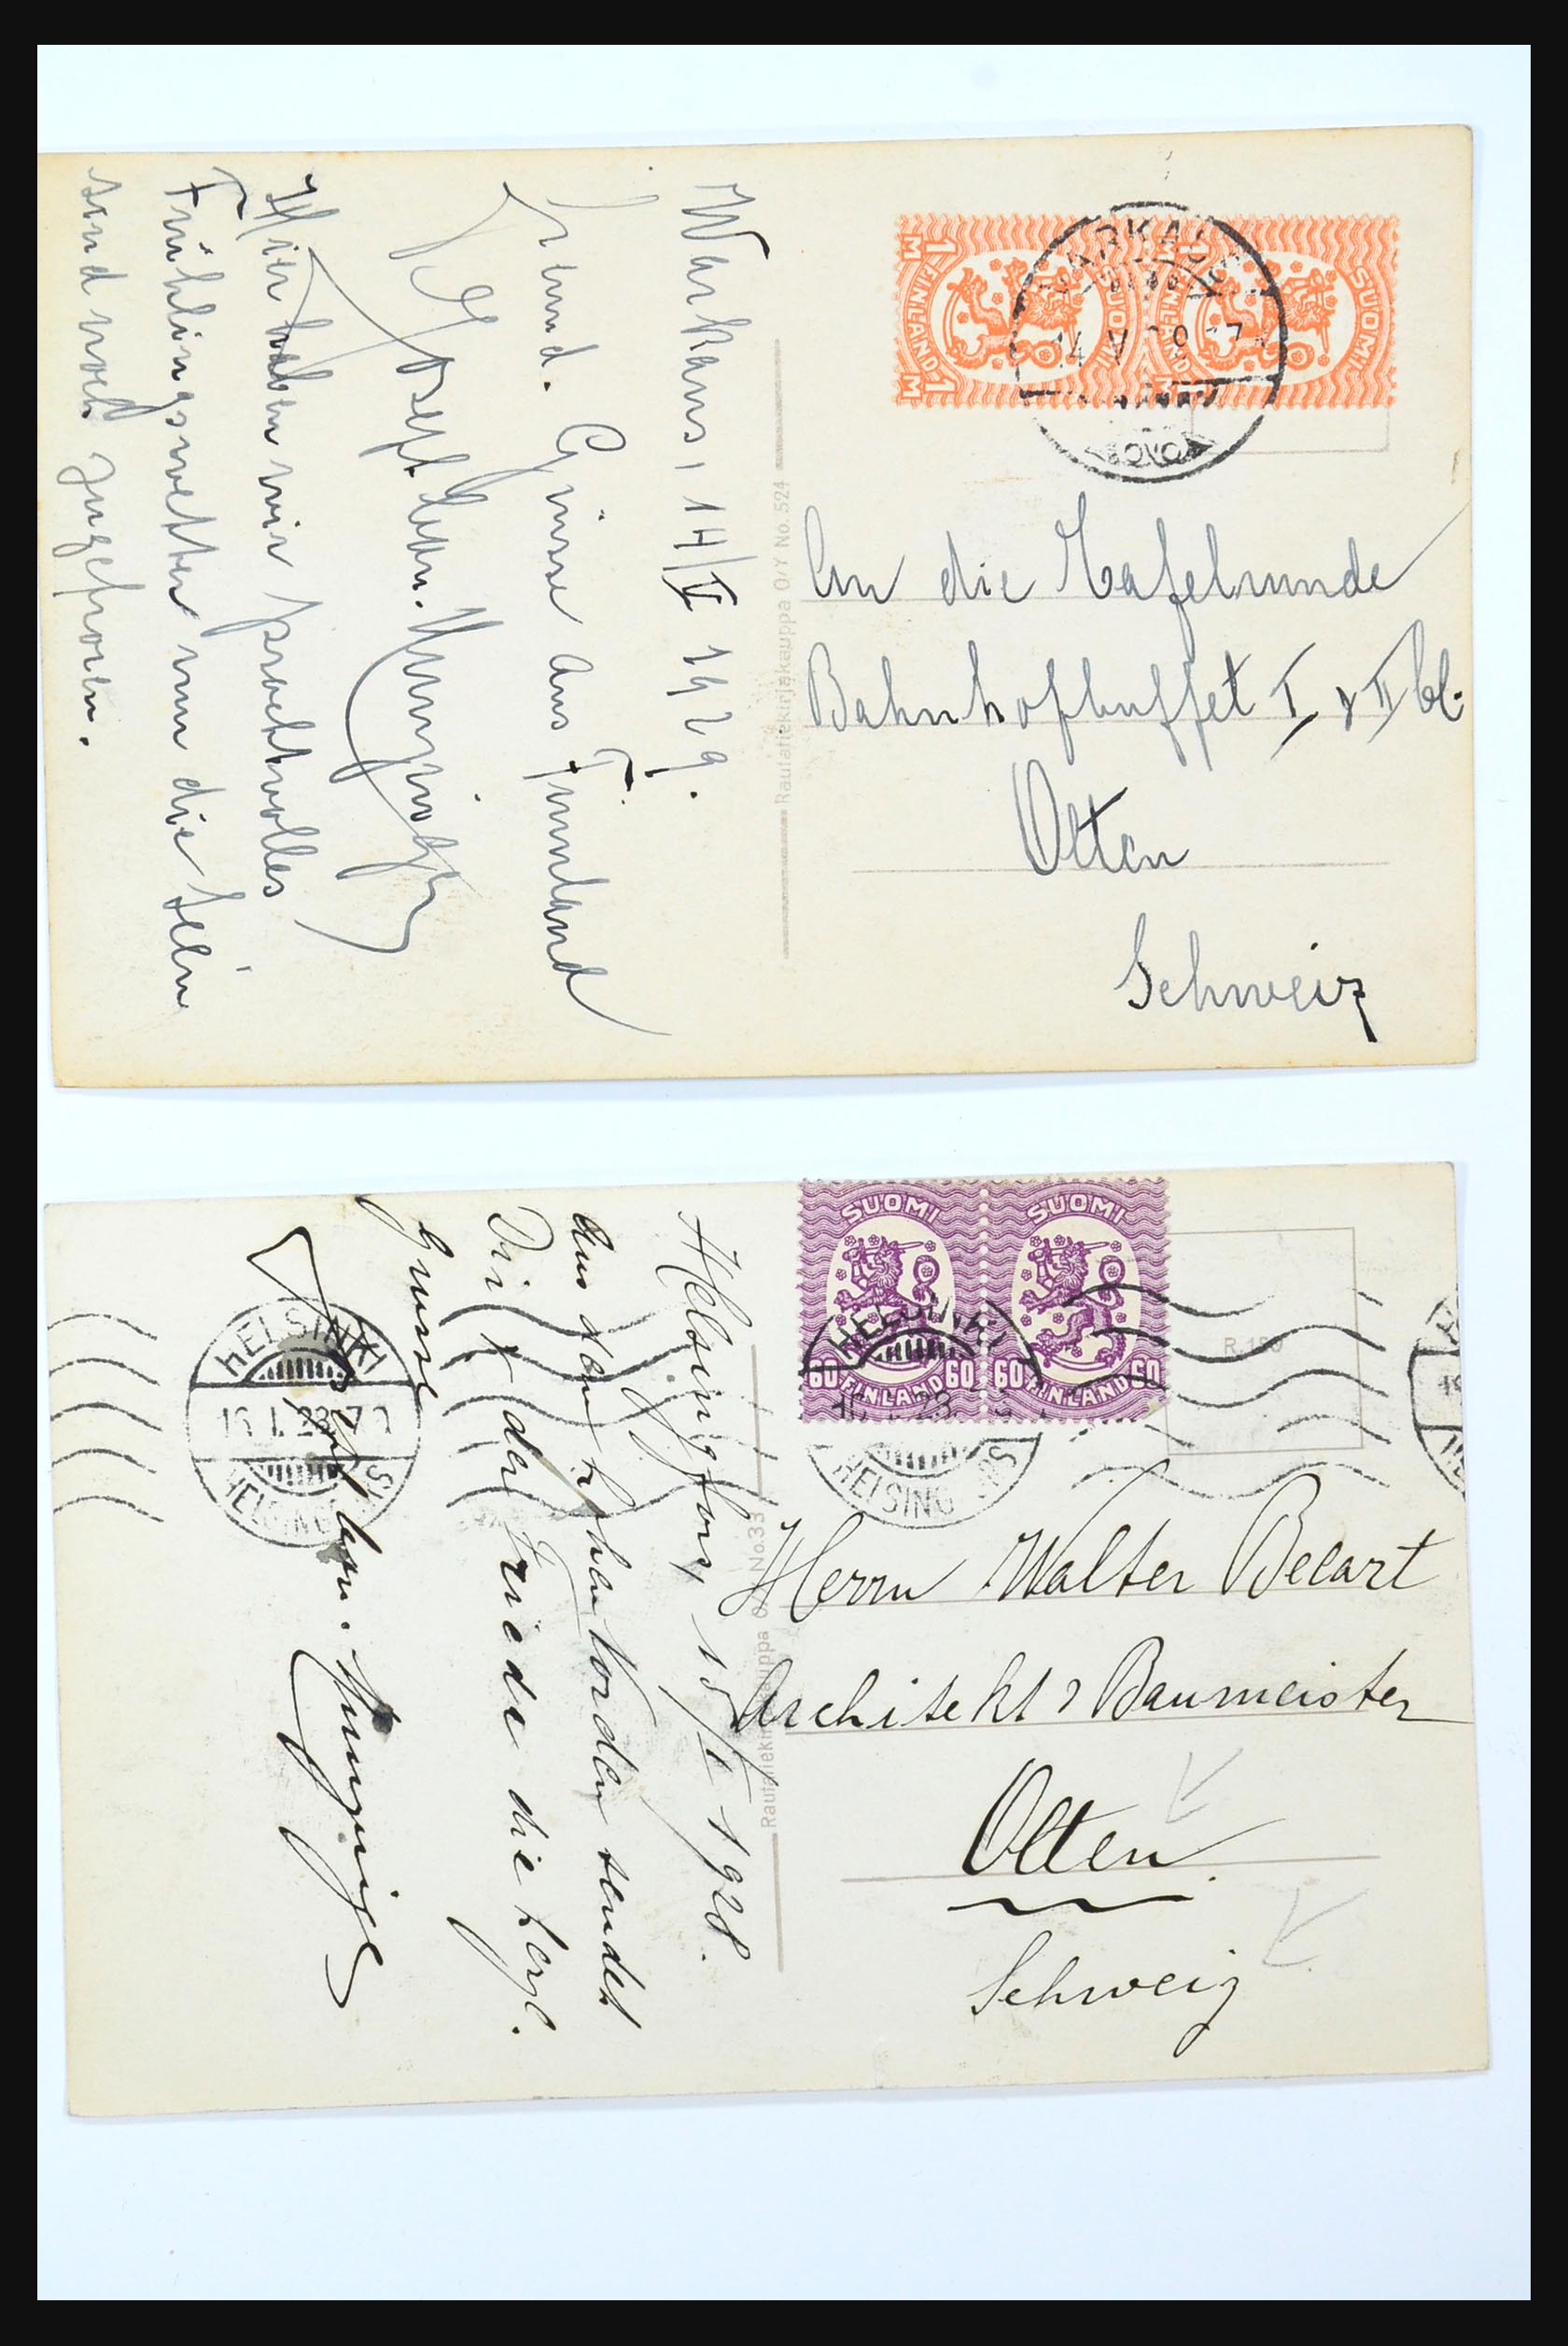 Warkaus, 14/V 1929.
Freund. Grüsse aus Finnland
Joseph Leon.
Hier haben wir prachtvolles
Frühlingswetter nun die Seen
sind noch zugefroren.
1 M FINLAND 1 M
SUOMI
FINLAND
SUOMI
14 V 17
Rautatiekirjakauppa O/Y No. 524
An die Tafelrunde
Bahnhofbuffet I & II Cl.
Olten
Schweiz
Helsingfors, 15/I 1928.
Aus dem hohen Norden sendet
Dir & der Friede die herzl.
Grüsse
Leon.
HELSINKI
16.I.28
HELSINGFORS
SUOMI
60 FINLAND 60
SUOMI
60 FINLAND 60
HELSINKI
HELSINGFORS
R.150
Rautatiekirjakauppa O/Y No. 33
Herrn Walter Belart
Architekt & Baumeister
Olten
Schweiz